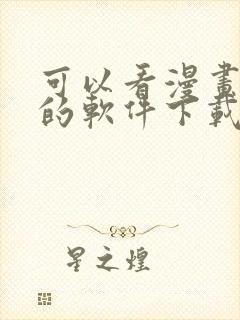 可以看漫畫
的軟件下載
星之煌